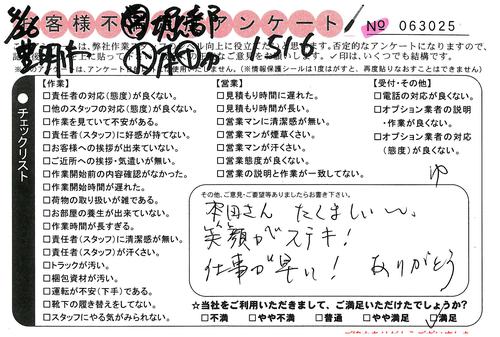 お客様不満足アンケート
No 063025
1516
は、弊社作業スタッフのレベル向上に役立てたいと思います。否定的なアンケートになりますので、
※情報保護シールは1度がすと、再度貼りなおすことはできません
チェックリスト
【作業】
□責任者の対応(態度)が良くない。
□他のスタッフの対応(態度)が良くない。
□作業を見ていて不安がある。
□責任者(スタッフ)に好感が持てない。
□お客様への挨拶が出来ていない。
□ご近所への挨拶・気遣いが無い。
□作業開始前の内容確認がなかった。
□作業開始時間が遅れた。
□荷物の取り扱いが雑である。
□お部屋の養生が出来ていない。
□作業時間が長すぎる。
□責任者(スタッフ)に清潔感が無い。
□責任者(スタッフ)が汗くさい。
□トラックが汚い。
□梱包資材が汚い。
□運転が不安(下手)である。
□靴下の履き替えをしてない。
□スタッフにやる気がみられない。
【営業】
□見積もり時間に遅れた。
□見積もり時間が長い。
□営業マンに清潔感が無い。
□営業マンが煙草くさい。
□営業マンが汗くさい。
□営業態度が良くない。
□営業の説明と作業が一致してない。
【受付・その他】
□電話の対応が良くない。
□オプション業者の説明
・作業が良くない。
□オプション業者の対応
(態度)が良くない。
その他、ご意見・ご要望等ありましたらお書き下さい。
本田さん たくましい〜。
笑顔がステキ!
仕事が早い! ありがとう
☆当社をご利用いただきまして、ご満足いただけたでしょうか?
□不満 □やや不満 □普通 □やや満足 ☑満足